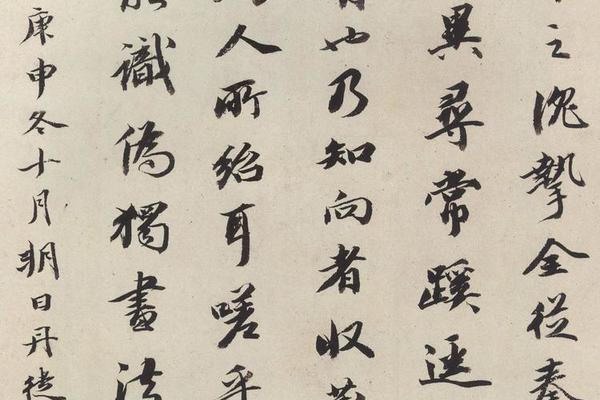 之摯全從
異尋常蹊逕
也乃知向者收
人所紿耳嗟乎
能識偽獨畫法
庚申冬十月朔日丹徒